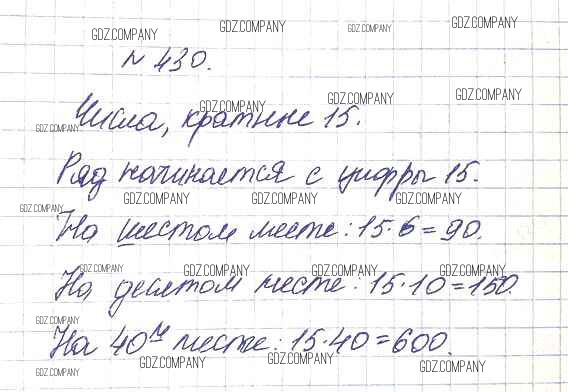 GDZ.COMPANY GDZ.COMPANY GDZ.COMPANY GDZ.COMPANY
№ 430.
GDZ.COMPANY GDZ.COMPANY GDZ.COMPANY GDZ.COMPANY
Числа, кратные 15.
Ряд начинается с цифры 15.
GDZ.COMPANY GDZ.COMPANY GDZ.COMPANY GDZ.COMPANY
На шестом месте: 15·6=90.
GDZ.COMPANY GDZ.COMPANY GDZ.COMPANY GDZ.COMPANY
На десятом месте: 15·10=150.
GDZ.COMPANY
На 40м месте: 15·40=600.
GDZ.COMPANY GDZ.COMPANY GDZ.COMPANY GDZ.COMPANY